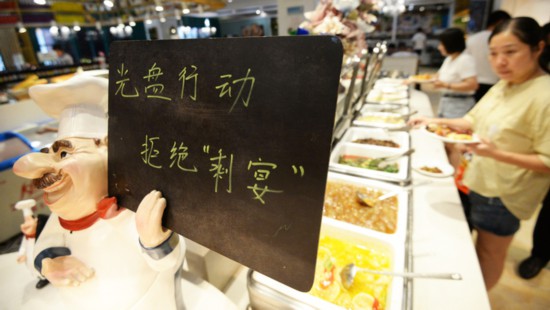 光盘行动
拒绝“剩宴”